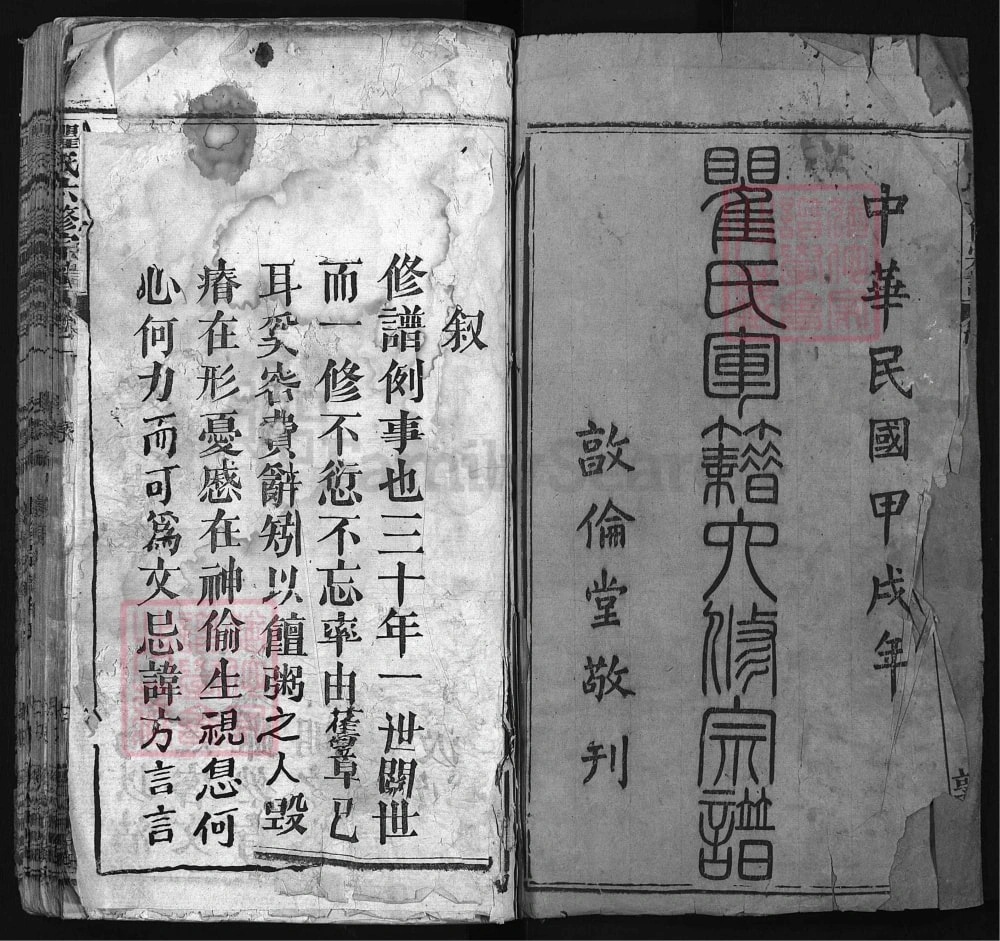 中華民國甲戌年
瞿氏軍籍六修宗譜
敦倫堂敬刊
叙
修譜例事也三十年一世閱世
而一修不愆不忘率由舊章已
耳奚容費辭矧以饘粥之人毀
瘠在形憂慼在神偷生視息何
心何力而可爲文忌諱方言言
瞿氏六修宗譜